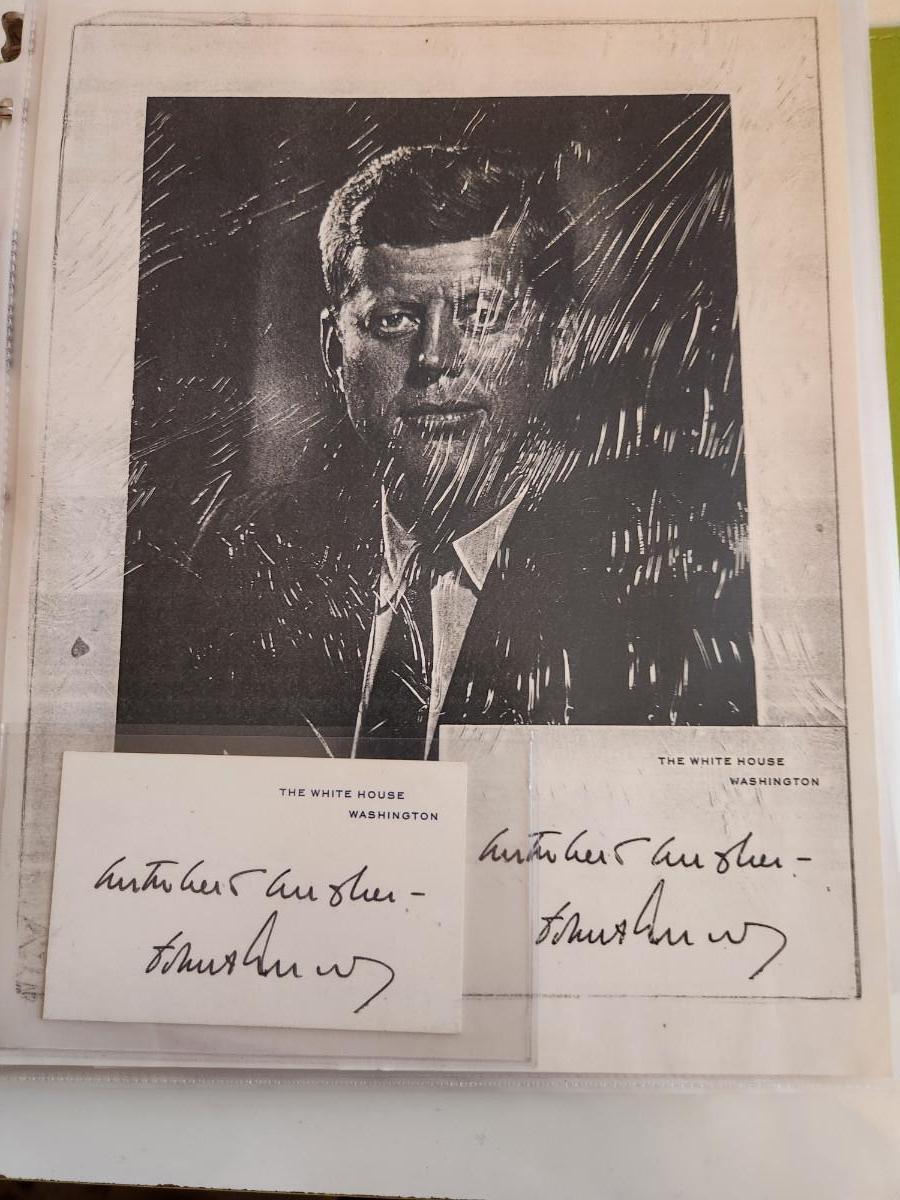 THE WHITE HOUSE
WASHINGTON
with best wishes –
John Kennedy
THE WHITE HOUSE
WASHINGTON
with best wishes –
John Kennedy